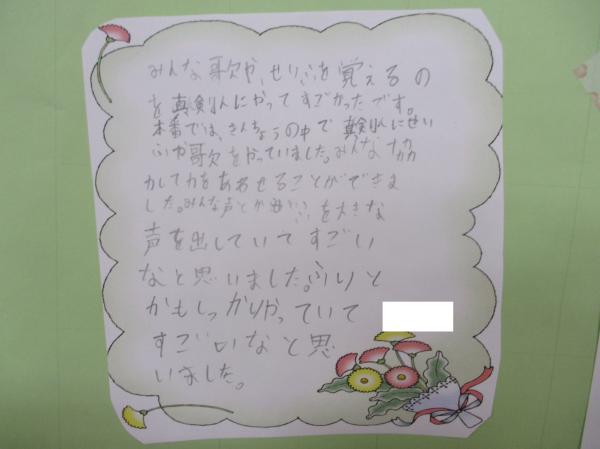 みんな歌や、せりふを覚えるの
を真剣にやってすごかったです。
本番では、きんちょうの中で真剣にせい
ふや歌をやっていました。みんな協
力して力をあわせることができま
した。みんな声とか を大きな
声を出していてすごい
なと思いました。ふりと
かもしっかりやっていて
すごいなと思
いました。